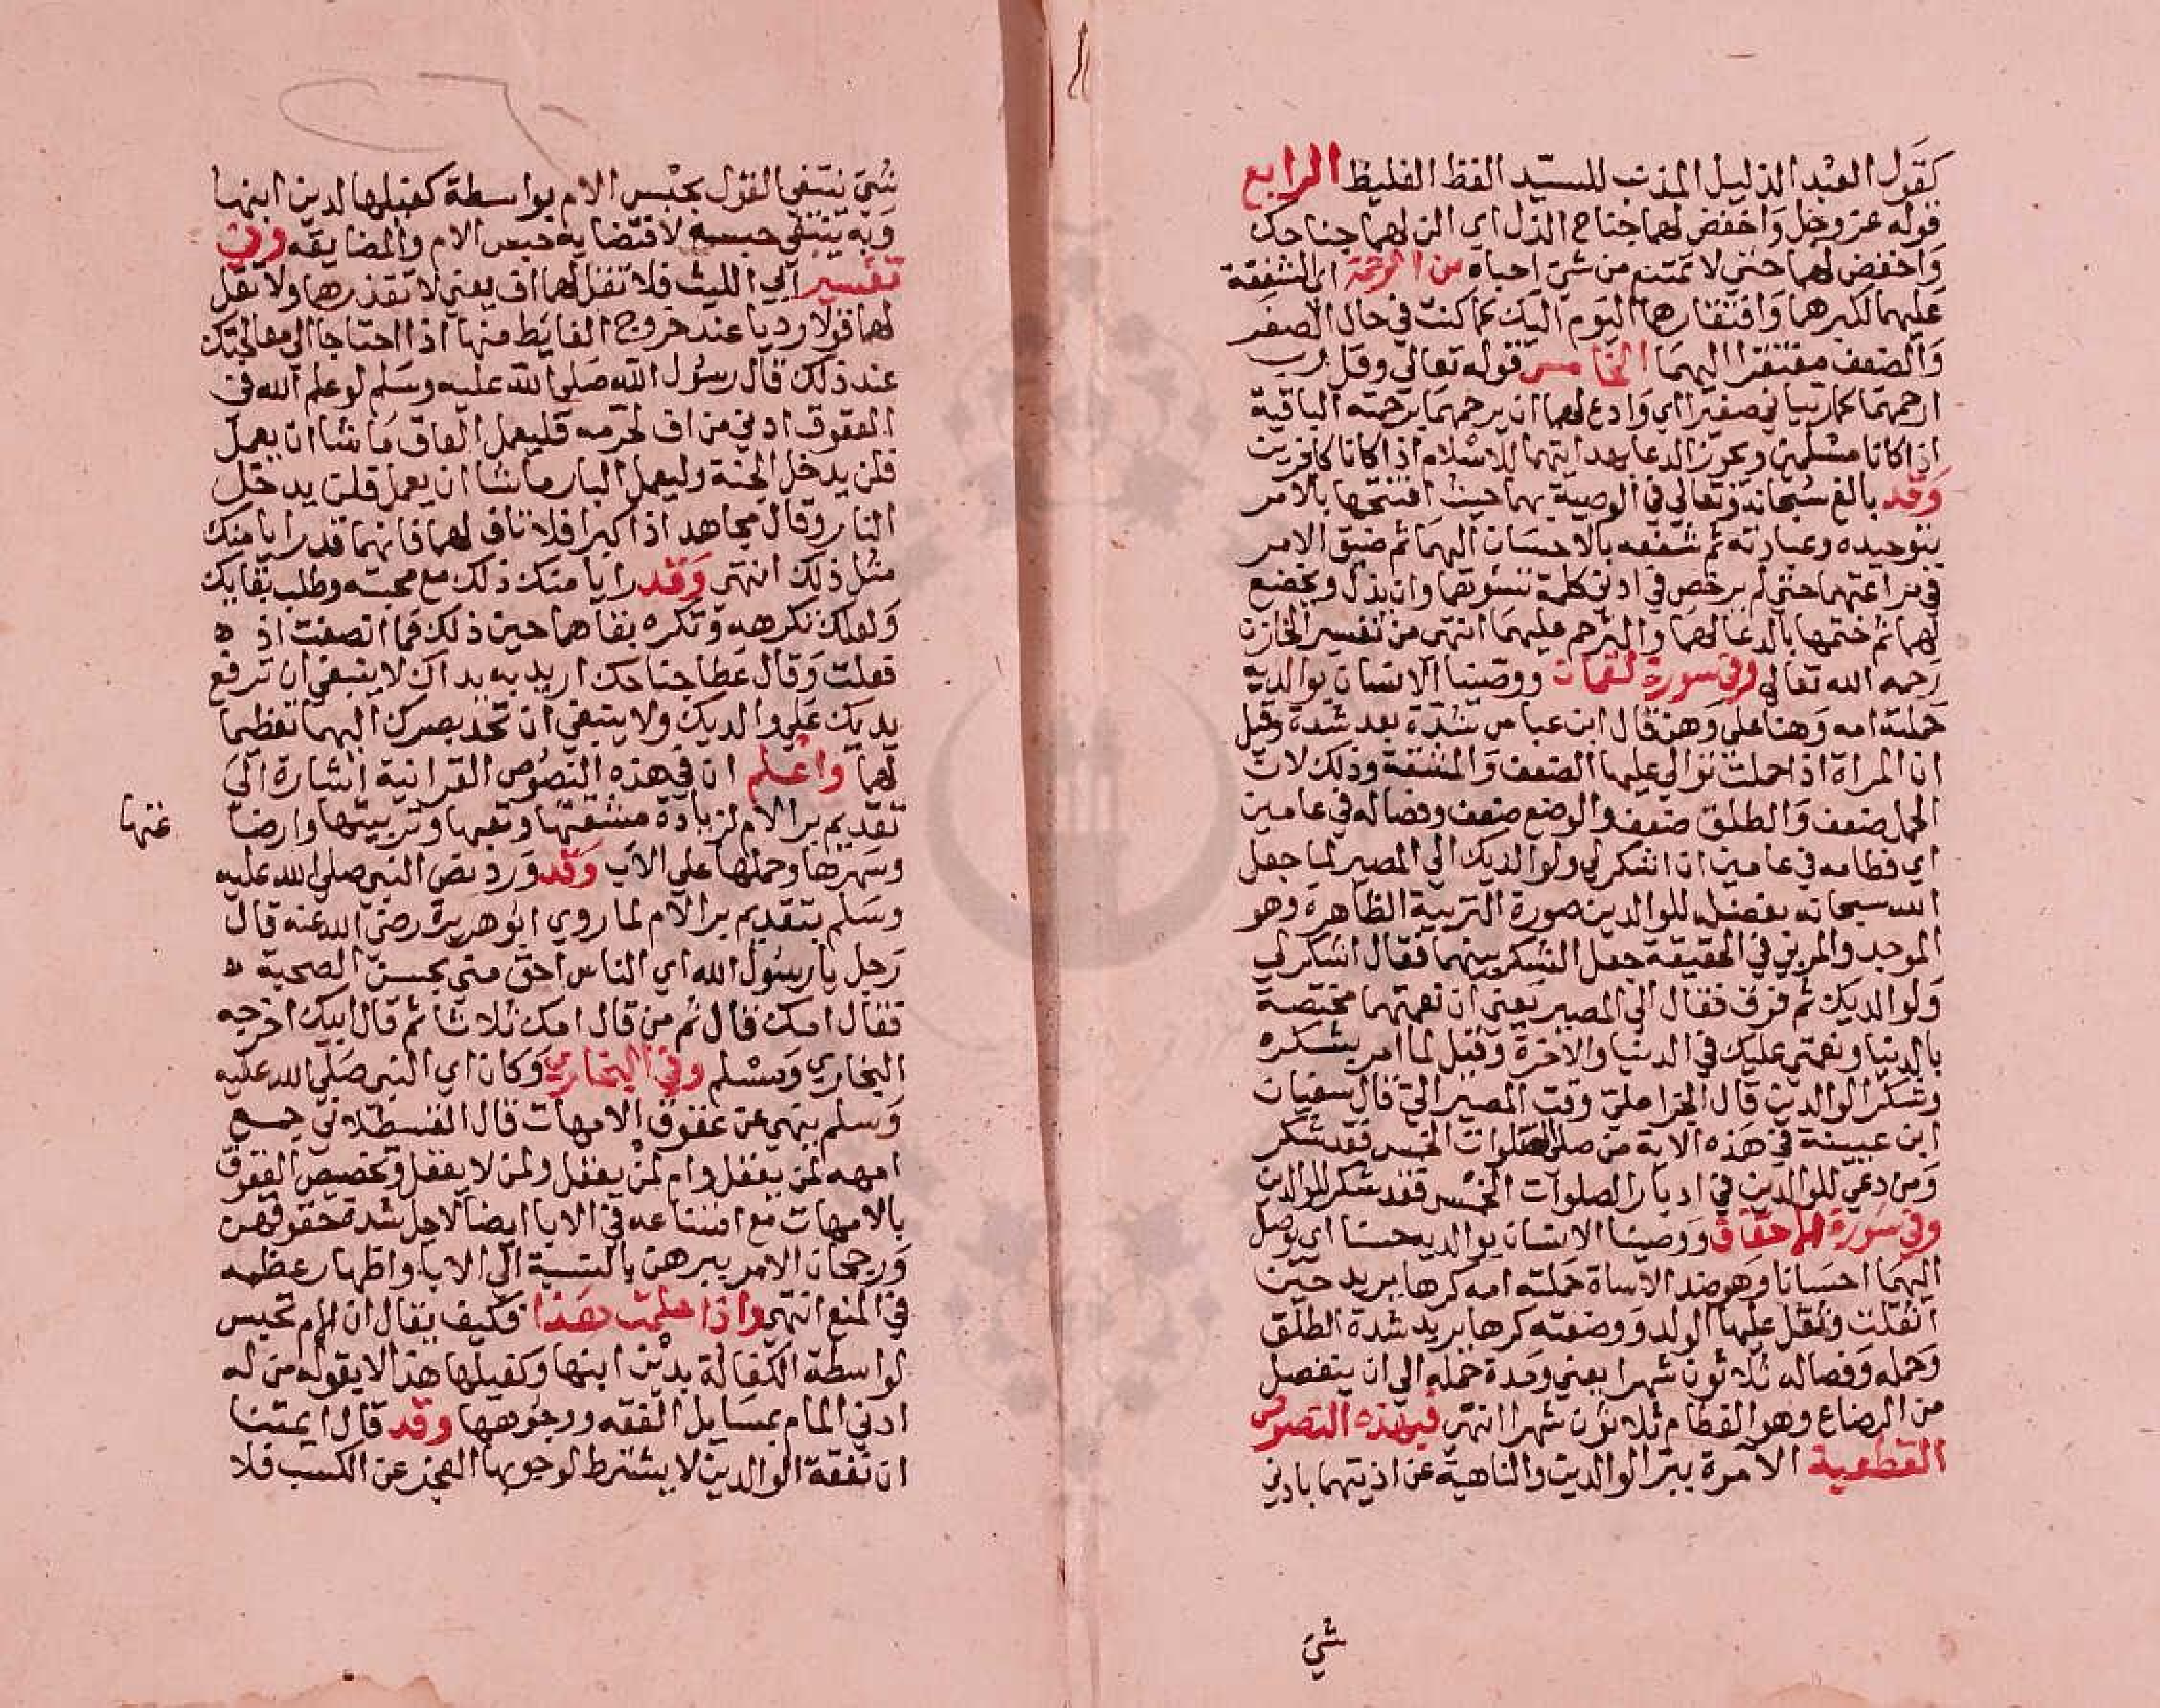 كقول العبد الذليل المذنب للسيد الفظ الغليظ الرابع
قوله عز وجل واخفض لهما جناح الذل اي الن لهما جناحك
واخفض لهما حتي لا تمتنع من شي احباه من الرحمة اي الشفقة
عليهما لكبرهما وافتقارهما اليوم اليك كما كنت في حال الصغر
والضعف مفتقرا اليهما الخامس قوله تعالي وقل رب
ارحمهما كما ربياني صغيرا اي وادع لهما ان يرحمهما برحمته الباقية
اذا كانا مسلمين ويجوز الدعا بهدايتهما للاسلام اذا كانا كافرين
وقد بالغ سبحانه وتعالي في الوصية بهما حيث افتتحها بالامر
بتوحيده وعبادته ثم شفعه بالاحسان اليهما ثم ضيق الامر
في مراعتهما حتي لم يرخص في ادني كلمة تسوهما وان يذل ويخضع
لهما ثم ختمها بالدعا لهما والترحم عليهما انتهي من تفسير الخازن
رحمه الله تعالي وفي سورة لقمان ووصينا الانسان بوالديه
حملته امه وهنا علي وهن قال ابن عباس شدة بعد شدة وقيل
ان المراة اذا حملت توالي عليها الضعف والمشقة وذلك لان
الحمل ضعف والطلق ضعف والوضع ضعف وفصاله في عامين
اي فطامه في عامين ان اشكر لي ولوالديك الي المصير لما جعل
الله سبحانه بفضله للوالدين صورة التربية الظاهرة وهو
الموجد والمربي في الحقيقة جعل الشكر بينهما فقال اشكر لي
ولوالديك ثم فرق فقال الي المصير يعني ان نعمتهما مختصة
بالدنيا ونعمتي عليك في الدنيا والاخرة وقيل لما امر بشكره
وشكر الوالدين قال الجزا علي وقت المصير الي قال سفيان
ابن عيينة في هذه الاية من صلي الصلوات الخمس فقد شكر
ومن دعي للوالدين في ادبار الصلوات الخمس فقد شكر للوالدين
وفي سورة الاحقاف ووصينا الانسان بوالديه حسنا اي يوصل
اليهما احسانا وهو ضد الاساة حملته امه كرها يريد حين
اثقلت وثقل عليها الولد ووضعته كرها يريد شدة الطلق
وحمله وفصاله ثلاثون شهرا يعني ومدة حمله الي ان ينفصل
من الرضاع وهو الفطام ثلاثون شهرا انتهي فبهذه النصوص
القطعية الآمرة ببر الوالدين والناهية عن اذيتهما بادني
شي
شي ينتفي القول بحبس الام بواسطة كفيلها لدين ابنها
وبه ينتفي حبسه لاقتضايه حبس الام والمضايقه وفي
تفسير ابي الليث فلا تقل لهما اف يعني لا تقذرهما ولا تقل
لهما قولا رديا عند خروج الغايط منهما اذا احتاجا الي معالجتك
عند ذلك قال رسول الله صلي الله عليه وسلم لو علم الله في
العقوق ادني من اف لحرمه فليعمل العاق ما شا ان يعمل
فلن يدخل الجنة وليعمل البار ما شا ان يعمل فلن يدخل
النار وقال مجاهد اذا كبرا فلا تاف لهما فانهما قد رايا منك
مثل ذلك انتهي وقد رايا منك ذلك مع محبته وطلب بقايك
ولعلك تكرهه وتكره بقاهما حين ذلك فما انصفت اذ
فعلت وقال عطا جناحك اريد به يداك لا ينبغي ان ترفع
يديك علي والديك ولا ينبغي ان تحد بصرك اليهما تعظيما
لهما واعلم ان في هذه النصوص القرانية اشارة الي
تقديم بر الام لزيادة مشقتها وتعبها وتربيتها وارضا
عنها
وسهرها وحملها علي الاب وقد ورد نص النبي صلي الله عليه
وسلم بتقديم بر الام لما روي ابو هريرة رضي الله عنه قال
رجل يا رسول الله اي الناس احق مني بحسن الصحبة
فقال امك قال ثم من قال امك ثلاثا ثم قال ابيك اخرجه
البخاري ومسلم وفي البخاري وكان اي النبي صلي الله عليه
وسلم ينهي عن عقوق الامهات قال القسطلاني جمع
امهه لمن يعقل وام لمن يعقل ولمن لا يعقل وتخصيص العقوق
بالامهات مع امتناعه في الابا ايضا لاجل شدة حقوقهن
ورجحان الامر ببرهن بالنسبة الي الابا واظهار عظمه
في المنع انتهي واذا علمت هذا فكيف يقال ان الام تحبس
لواسطة الكفالة بدين ابنها وكفيلها هذا لا يقوله من له
ادني المام بمسايل الفقه ووجوهها وقد قال ايمتنا
ان نفقة الوالدين لا يشترط لوجوبها العجز عن الكسب فلا